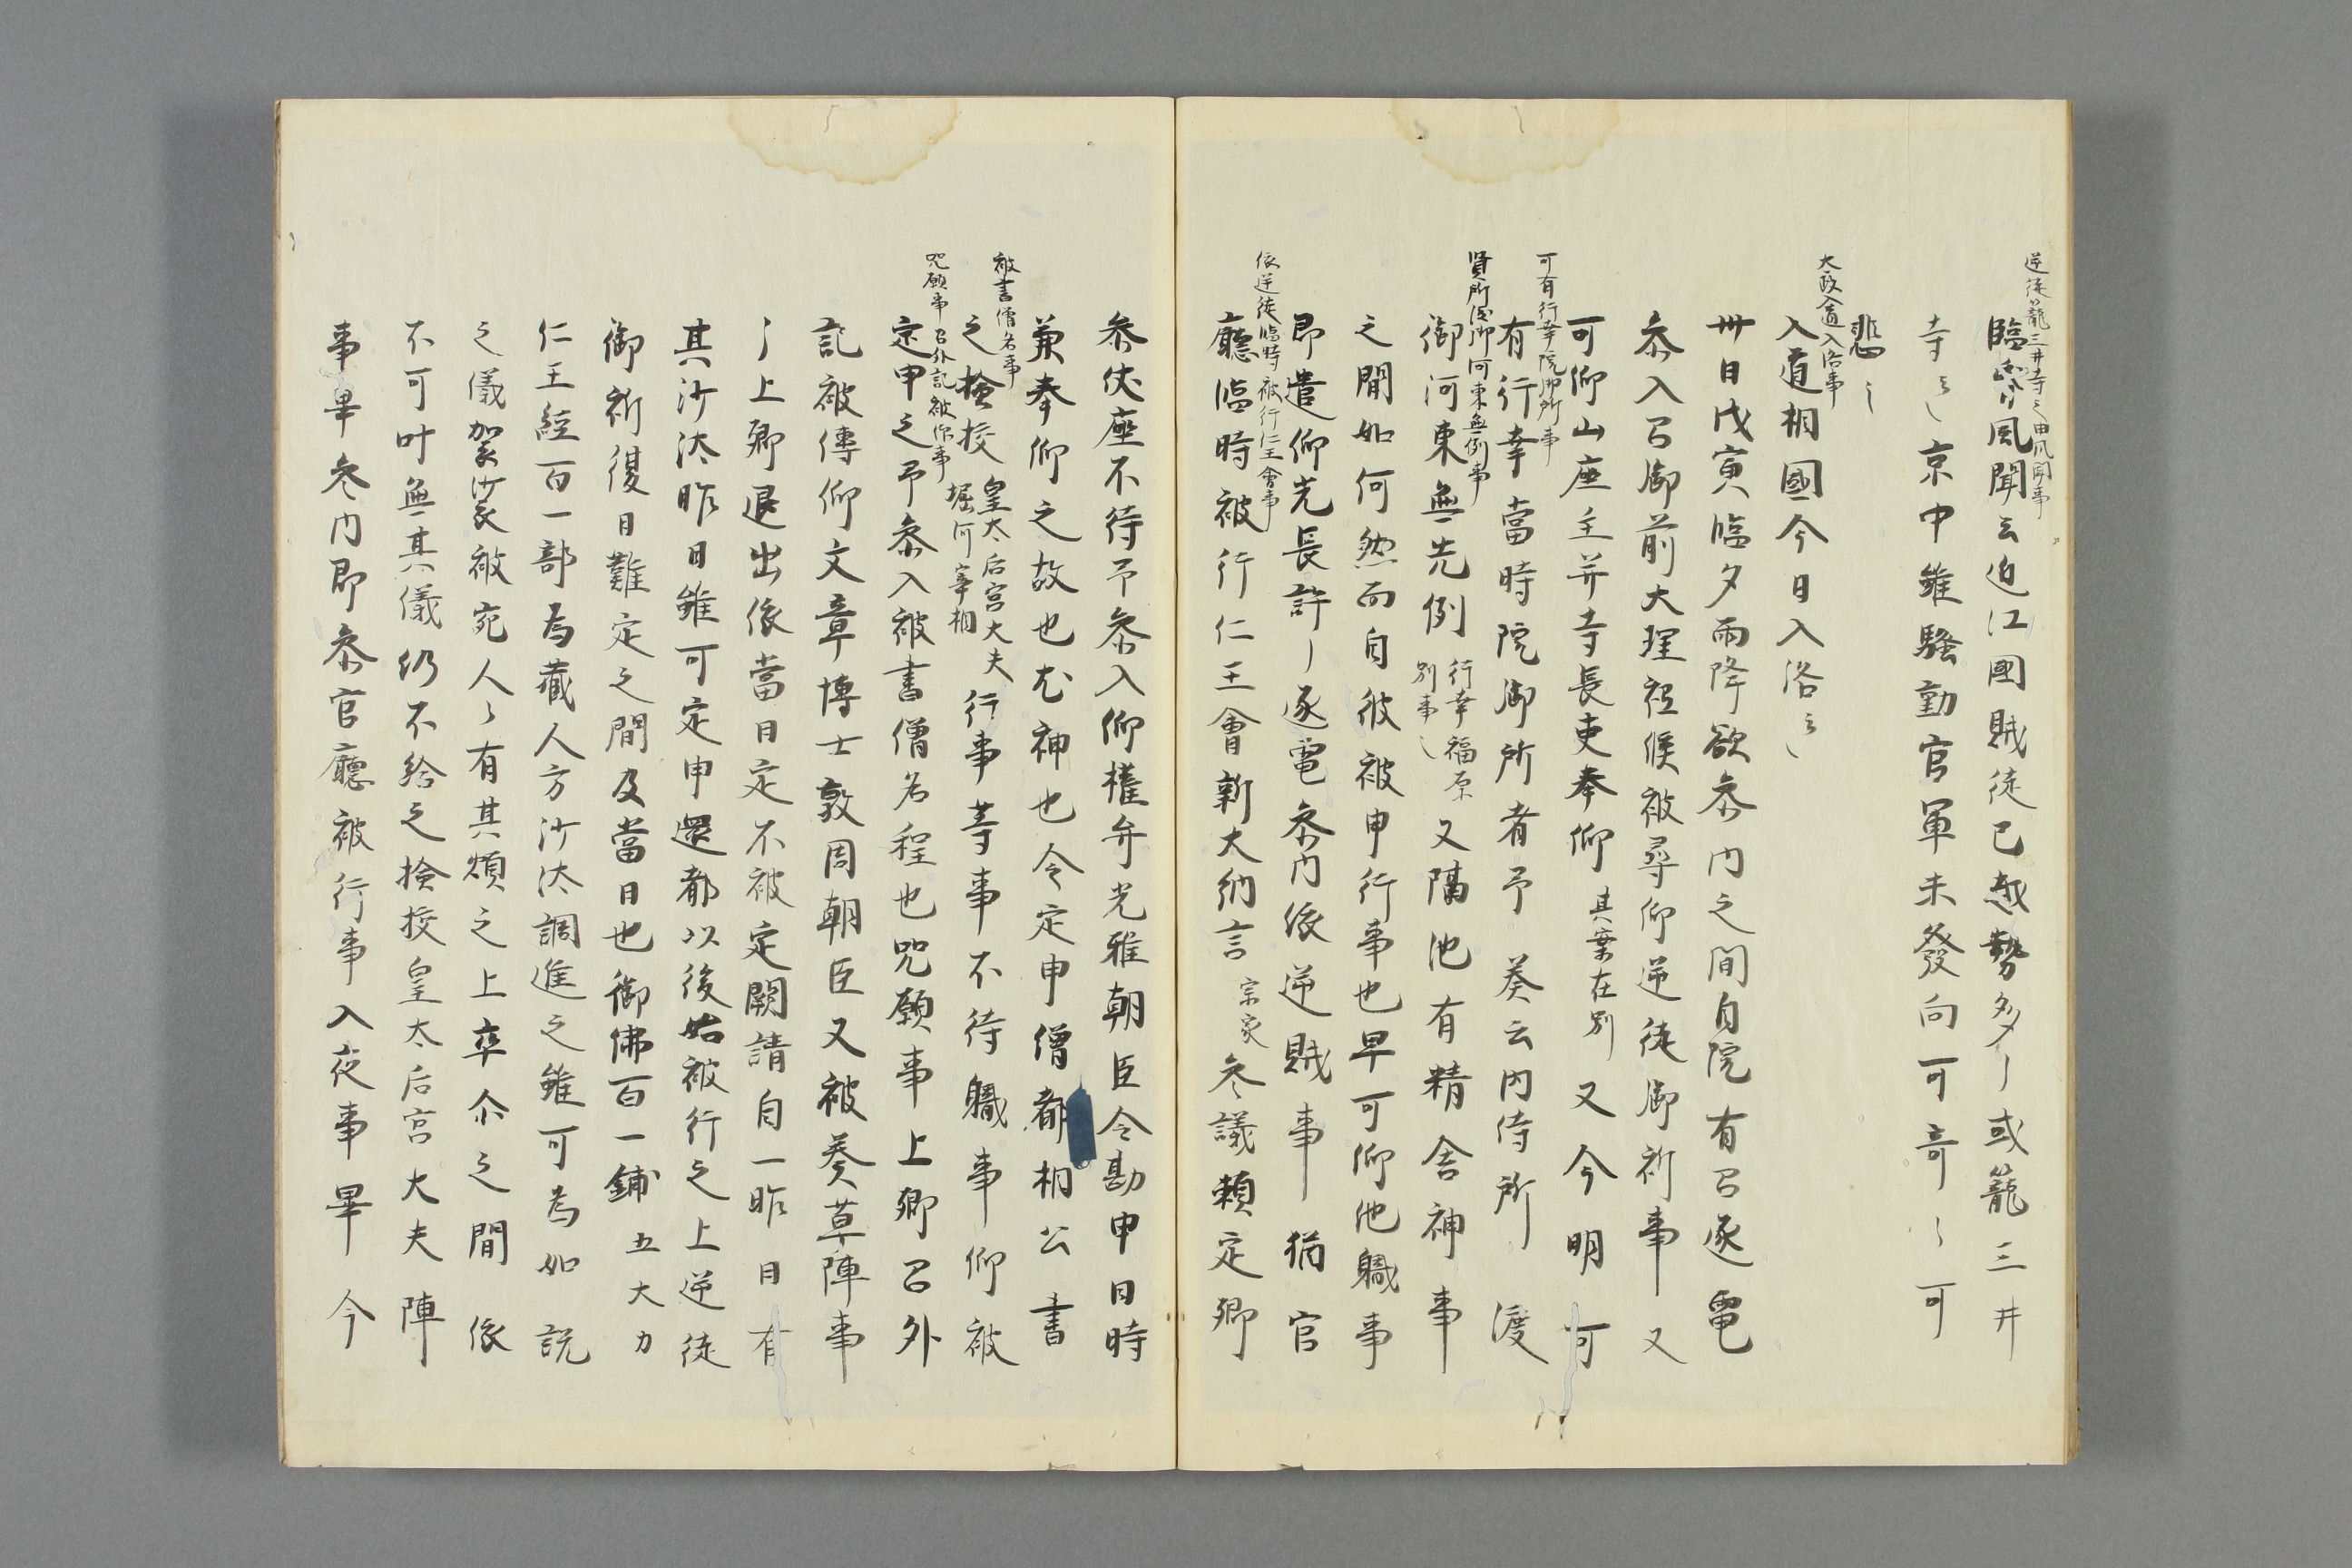 逆徒籠三井寺之由風聞事
臨昏風聞云近江國賊徒已越勢多〳〵或籠三井
寺云〻京中雖騒動官軍未發向可奇〻〻可
悲〻〻
大政入道入洛事
入道相國今日入洛云〻
卅日戊寅臨夕雨降欲参内之間自院有召逐電
参入召御前大理祗候被尋仰逆徒御祈事又
可仰山座主并寺長吏奉仰其案在別又今明可
可有行幸院御所事
有行幸當時院御所者予奏云内侍所渡
賢所渡御河東無例事
御河東無先例行幸福原別事〻又隔池有精舎神事
之間如何然而自彼被申行事也早可仰他職事
即遣仰光長許〳〵逐電参内依逆賊事猶官
依逆徒臨時被行仁王會事
廳臨時被行仁王會新大納言宗家参議頼定卿
参仗座不待予参入仰權弁光雅朝臣令勘申日時
兼奉仰之故也尤神也令定申僧都相公書
被書僧名事
之檢挍皇太后宮大夫堀河宰相行事等事不待職事仰被
呪願事召外記被仰事
定申之予参入被書僧名程也呪願事上卿召外
記被傳仰文章博士敦周朝臣又被奏草陣事
〻上卿退出依當日定不被定闕請自一昨日有
其沙汰昨日雖可定申還都以後始被行之上逆徒
御祈復日難定之間及當日也御佛百一鋪五大力
仁王經百一部為藏人方沙汰調進之雖可為如説
之儀袈裟被宛人〻有其煩之上卒尓之間依
不可叶無其儀仍不給之檢挍皇太后宮大夫陣
事畢参内即参官廳被行事入夜事畢今